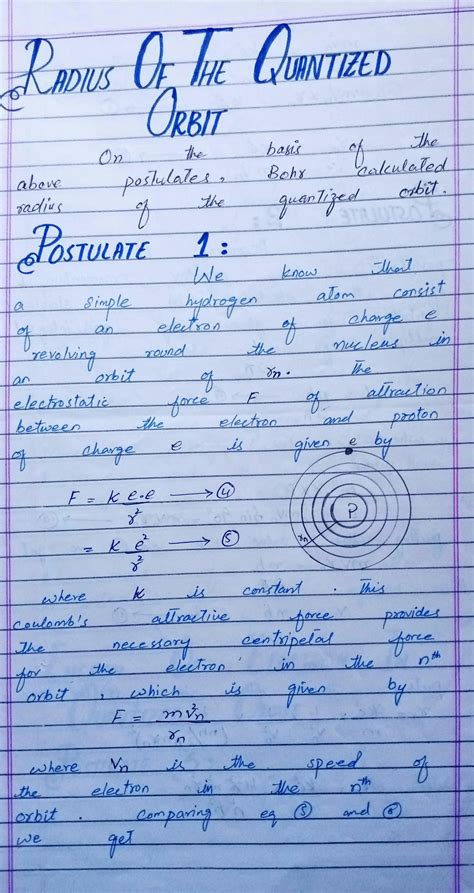 RADIUS OF THE QUANTIZED
ORBIT
On the basis of the
above postulates, Bohr calculated
radius of the quantized orbit.
POSTULATE 1:
We know that
a simple hydrogen atom consist
of an electron of charge e
revolving round the nucleus in
an orbit of rn. The
electrostatic force F of attraction
between the electron and proton
of charge e is given by
e
F = K e.e/r² → ④
P
rn
= K e²/r² → ⑤
where K is constant. This
coulomb's attractive force provides
the necessary centripetal force
for the electron in the nth
orbit, which is given by
F = mv²n/rn
where Vn is the speed of
the electron in the nth
orbit. comparing eq ⑤ and ⑥
we get